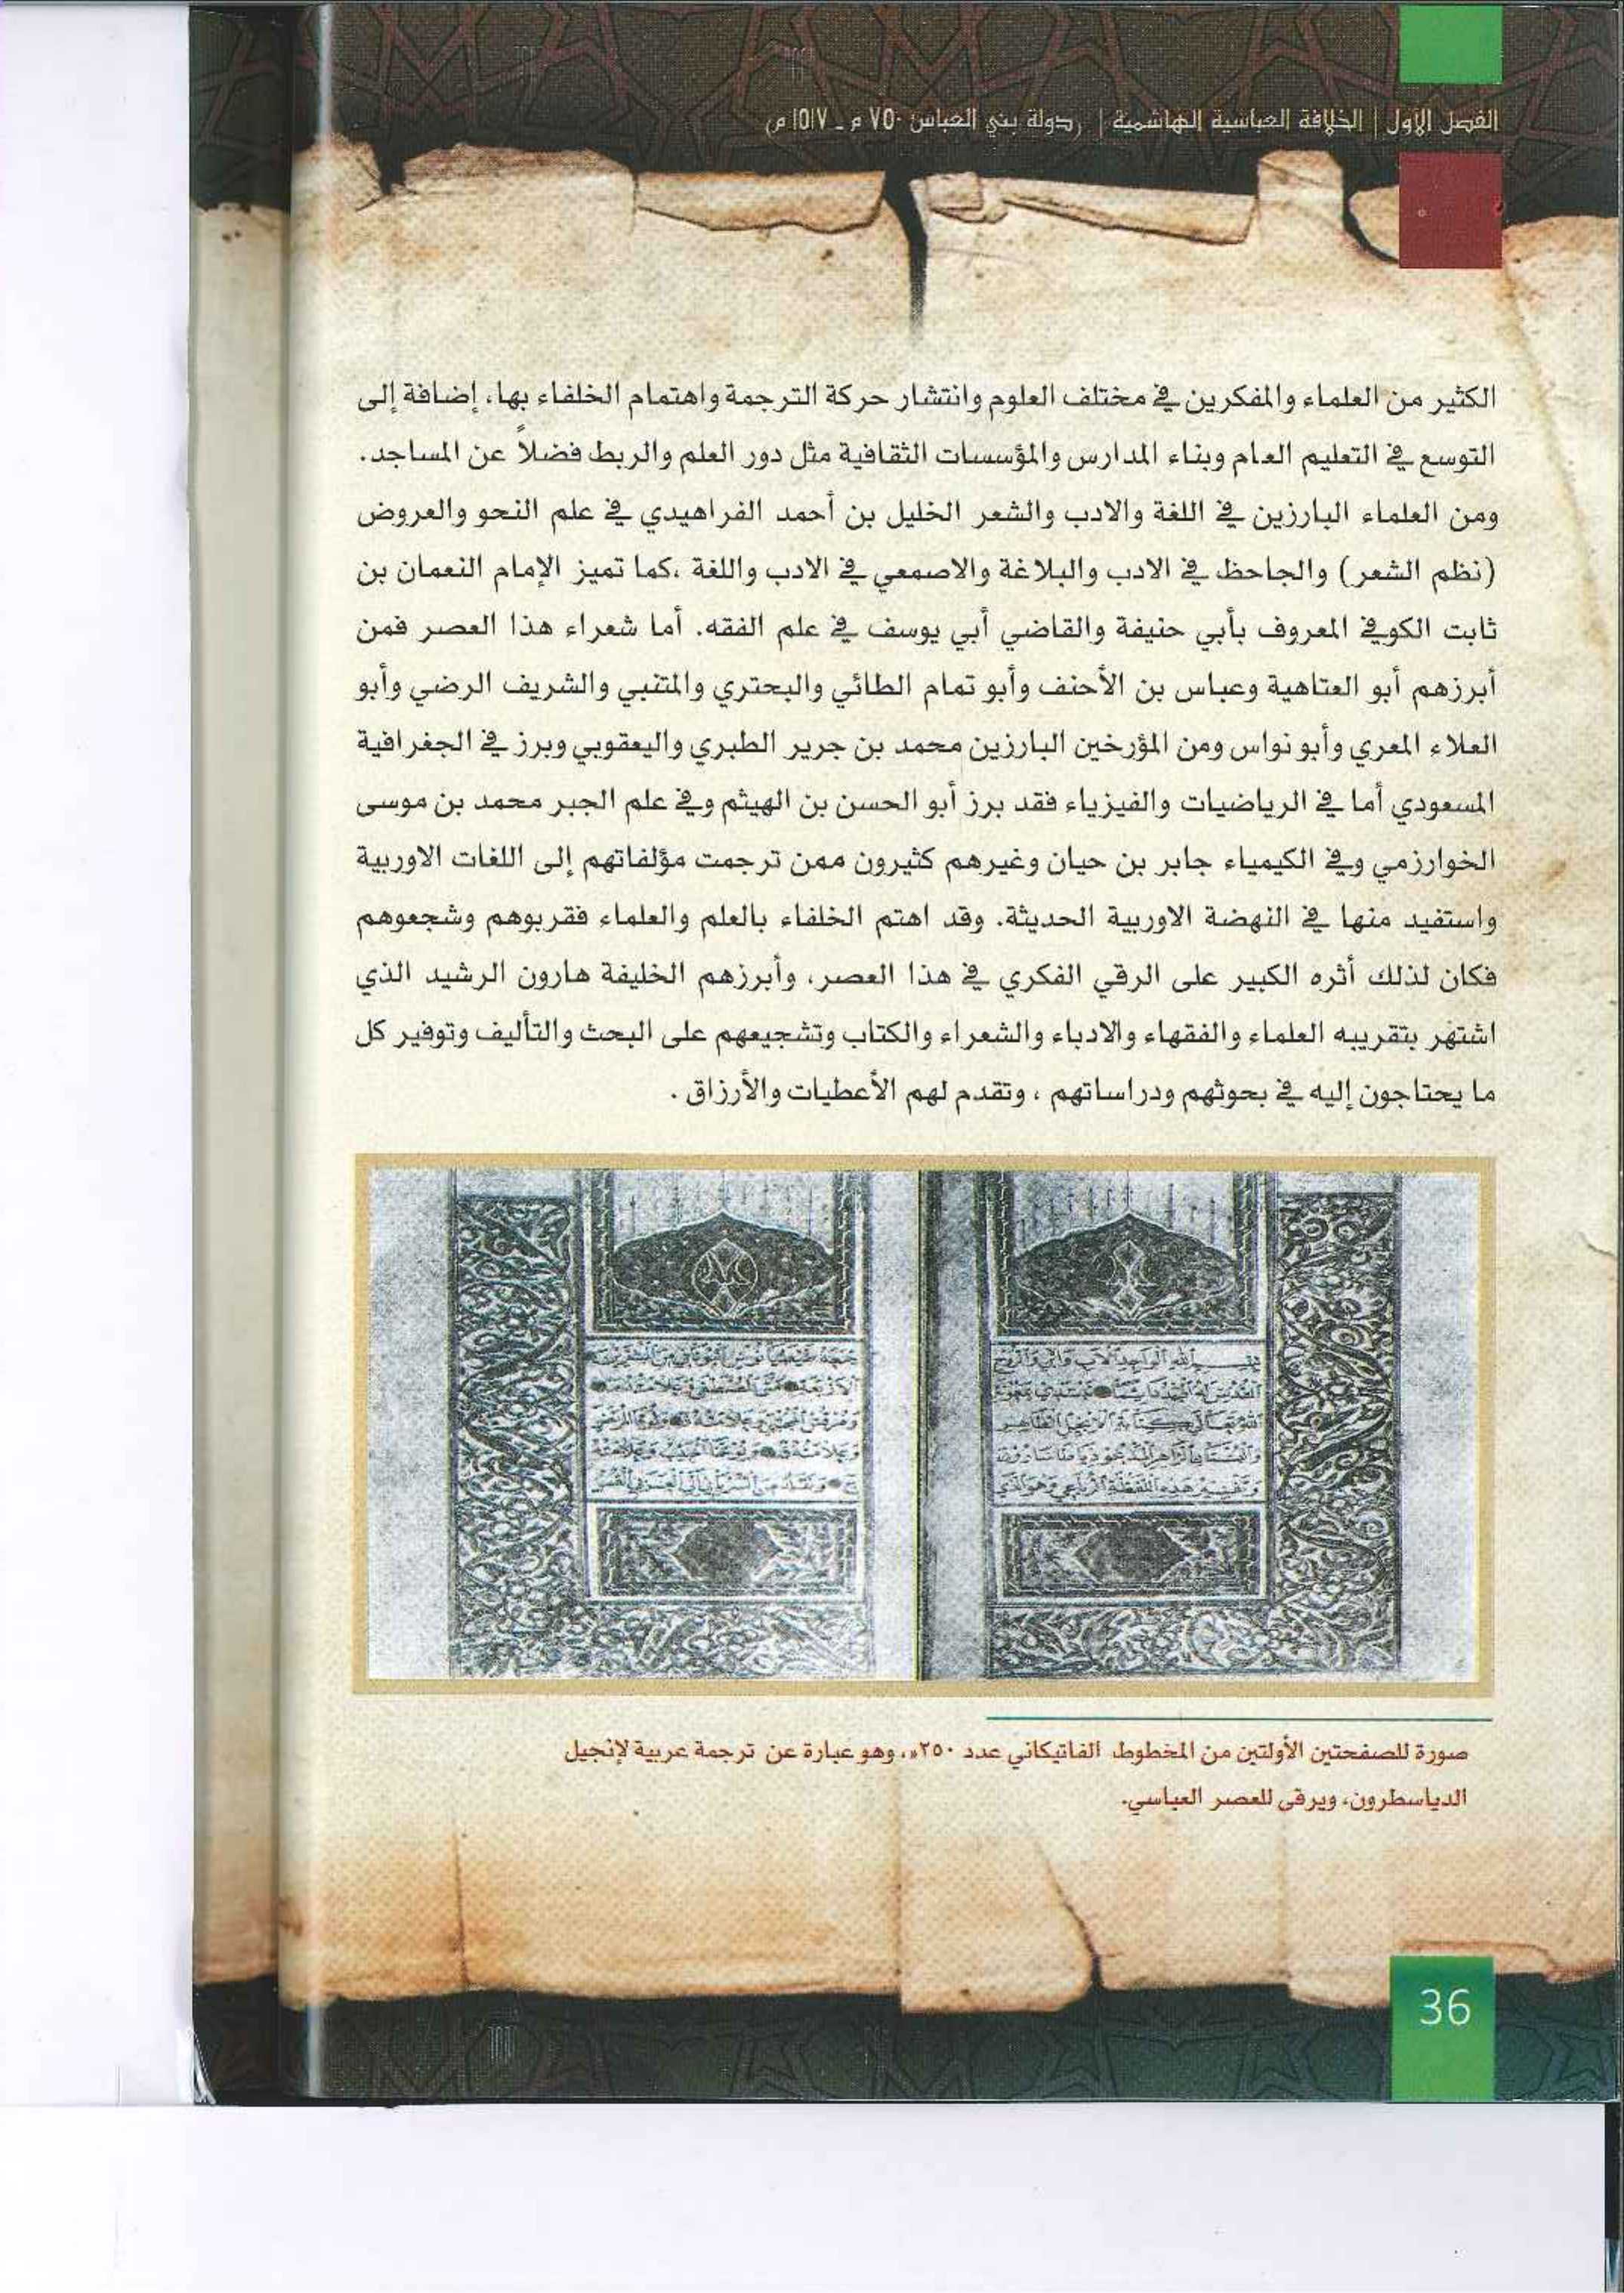 الفصل الاول | الخلافة العباسية الهاشمية | (دولة بني العباس ٧٥٠ م - ١٥١٧ م)
الكثير من العلماء والمفكرين في مختلف العلوم وانتشار حركة الترجمة واهتمام الخلفاء بها، إضافة إلى
التوسع في التعليم العام وبناء المدارس والمؤسسات الثقافية مثل دور العلم والربط فضلاً عن المساجد.
ومن العلماء البارزين في اللغة والادب والشعر الخليل بن أحمد الفراهيدي في علم النحو والعروض
(نظم الشعر) والجاحظ في الادب والبلاغة والاصمعي في الادب واللغة ،كما تميز الإمام النعمان بن
ثابت الكوفي المعروف بأبي حنيفة والقاضي أبي يوسف في علم الفقه. أما شعراء هذا العصر فمن
أبرزهم أبو العتاهية وعباس بن الأحنف وأبو تمام الطائي والبحتري والمتنبي والشريف الرضي وأبو
العلاء المعري وأبو نواس ومن المؤرخين البارزين محمد بن جرير الطبري واليعقوبي وبرز في الجغرافية
المسعودي أما في الرياضيات والفيزياء فقد برز أبو الحسن بن الهيثم وفي علم الجبر محمد بن موسى
الخوارزمي وفي الكيمياء جابر بن حيان وغيرهم كثيرون ممن ترجمت مؤلفاتهم إلى اللغات الاوربية
واستفيد منها في النهضة الاوربية الحديثة. وقد اهتم الخلفاء بالعلم والعلماء فقربوهم وشجعوهم
فكان لذلك أثره الكبير على الرقي الفكري في هذا العصر، وأبرزهم الخليفة هارون الرشيد الذي
اشتهر بتقريبه العلماء والفقهاء والادباء والشعراء والكتاب وتشجيعهم على البحث والتأليف وتوفير كل
ما يحتاجون إليه في بحوثهم ودراساتهم ، وتقدم لهم الأعطيات والأرزاق .
صورة للصفحتين الأولتين من المخطوط الفاتيكاني عدد ٢٥٠»، وهو عبارة عن ترجمة عربية لإنجيل
الدياسطرون، ويرقى للعصر العباسي.
36